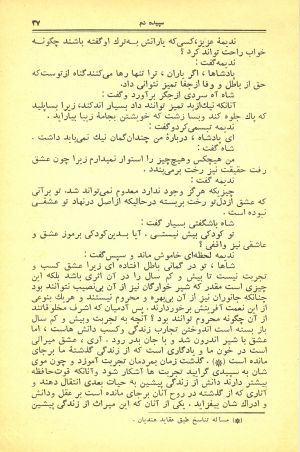 سپیده دم ۳۷
ندیمهٔ عزیز، کسی‌که یارانش به‌ترك او گفته باشند چگونه
خواب راحت تواند کرد ؟
ندیمه گفت :
پادشاها ، اگر یاران ، ترا تنها رها می‌کنند گناه از توست که
حق از باطل و وفا از جفا تمیز نتوانی داد.
شاه آه سردی از جگر برآورد و گفت :
آنانکه نیك از بد تمیز توانند داد بسیار اندکند، زیرا بسا پلید
که پاك جلوه کند و بسا زشت که خویشتن بجامهٔ زیبا بیاراید .
ندیمه تبسمی کرد و گفت :
ای پادشاه ، دربارهٔ من چندان گمان نیك نمی‌باید داشت .
شاه گفت :
من هیچکس و هیچ‌چیز را استوار نمیدارم زیرا چون عشق
رفت حقیقت نیز رخت برمی‌بندد .
ندیمه گفت :
چیزیکه هرگز وجود ندارد معدوم نمی‌تواند شد. تو برآنی
که عشق از دل تو رخت بربسته درحالیکه از اصل درنهاد تو عشقی
نبوده است .
شاه باشگفتی بسیار گفت :
تو کودکی بیش نیستی . آیا بدین کودکی برموز عشق و
عاشقی نیز واقفی ؟
ندیمه لحظه‌ای خاموش ماند و سپس گفت :
شاها ، تو در گمانی باطل افتاده ای زیرا عشق کسب و
تجربت نیست تا بیش و کم سالها را در آن اثری باشد بلکه این
چیزی است مقدر که شیر خوارگان نیز از آن بی‌نصیب نتوانند بود
چنانکه جانوران نیز از آن بی‌بهره و محروم نیستند و هریك بنوعی
از این نعمت آفرینش برخوردارند . پس آدمیان که اشرف مخلوقاتند
از آن چگونه محروم توانند بود ؟ آنچه به تجربت و بیش و کم سال
باز بسته است اندوختن تجارب زندگی و کسب دانش هاست ، اما
عشق با شیر اندرون شد و با جان بدر رود . آری ، عشق میراثی
است در خون ما و یادگاری است که از زندگی گذشتهٔ ما برجای
مانده است (*) . گذشت زمان بمردمان تجربت آموزد و چون موی
شان به سپیدی گراید تجربت ها آشکار شود و آنانکه قوت حافظه
بیشتر دارند دانش از زندگی پیشین به حیات بعدی انتقال دهند و
آثاری که از گذشته در روح آنان برجای مانده است بر عقل و دانش
و ادراك شان بیفزاید . یکی از آنان که این میراث از زندگی پیشین
(*) مساله تناسخ طبق عقاید هندیان .